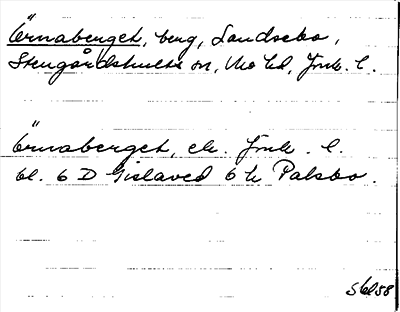 Örnaberget, berg, Landsebo,
Stengårdshults sn, Mo hd, Jönk. l.
Örnaberget, ek. Jönk. l.
bl. 6 D Gislaved 6 h Palsbo.